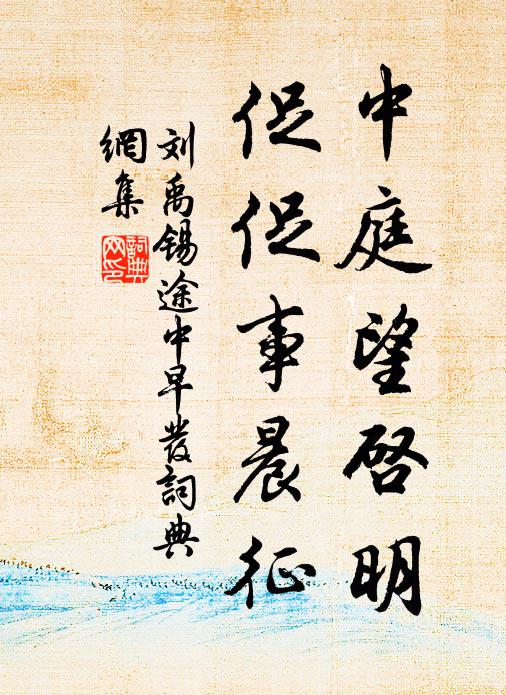 中庭望启明
促促事晨征
刘禹锡途中早發詞典
網集
詞典
网印